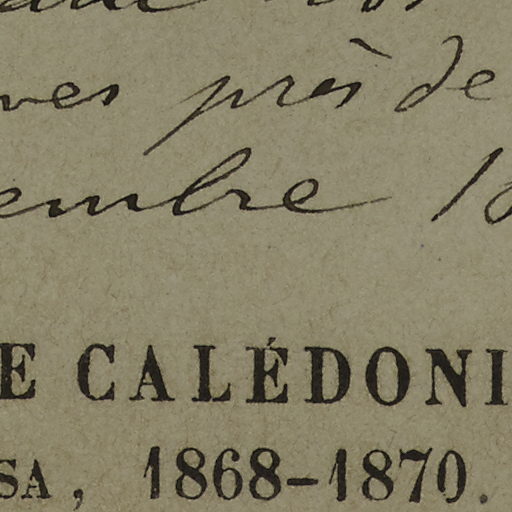 ves près de
embre 18
E CALÉDONI
SA, 1868-1870.